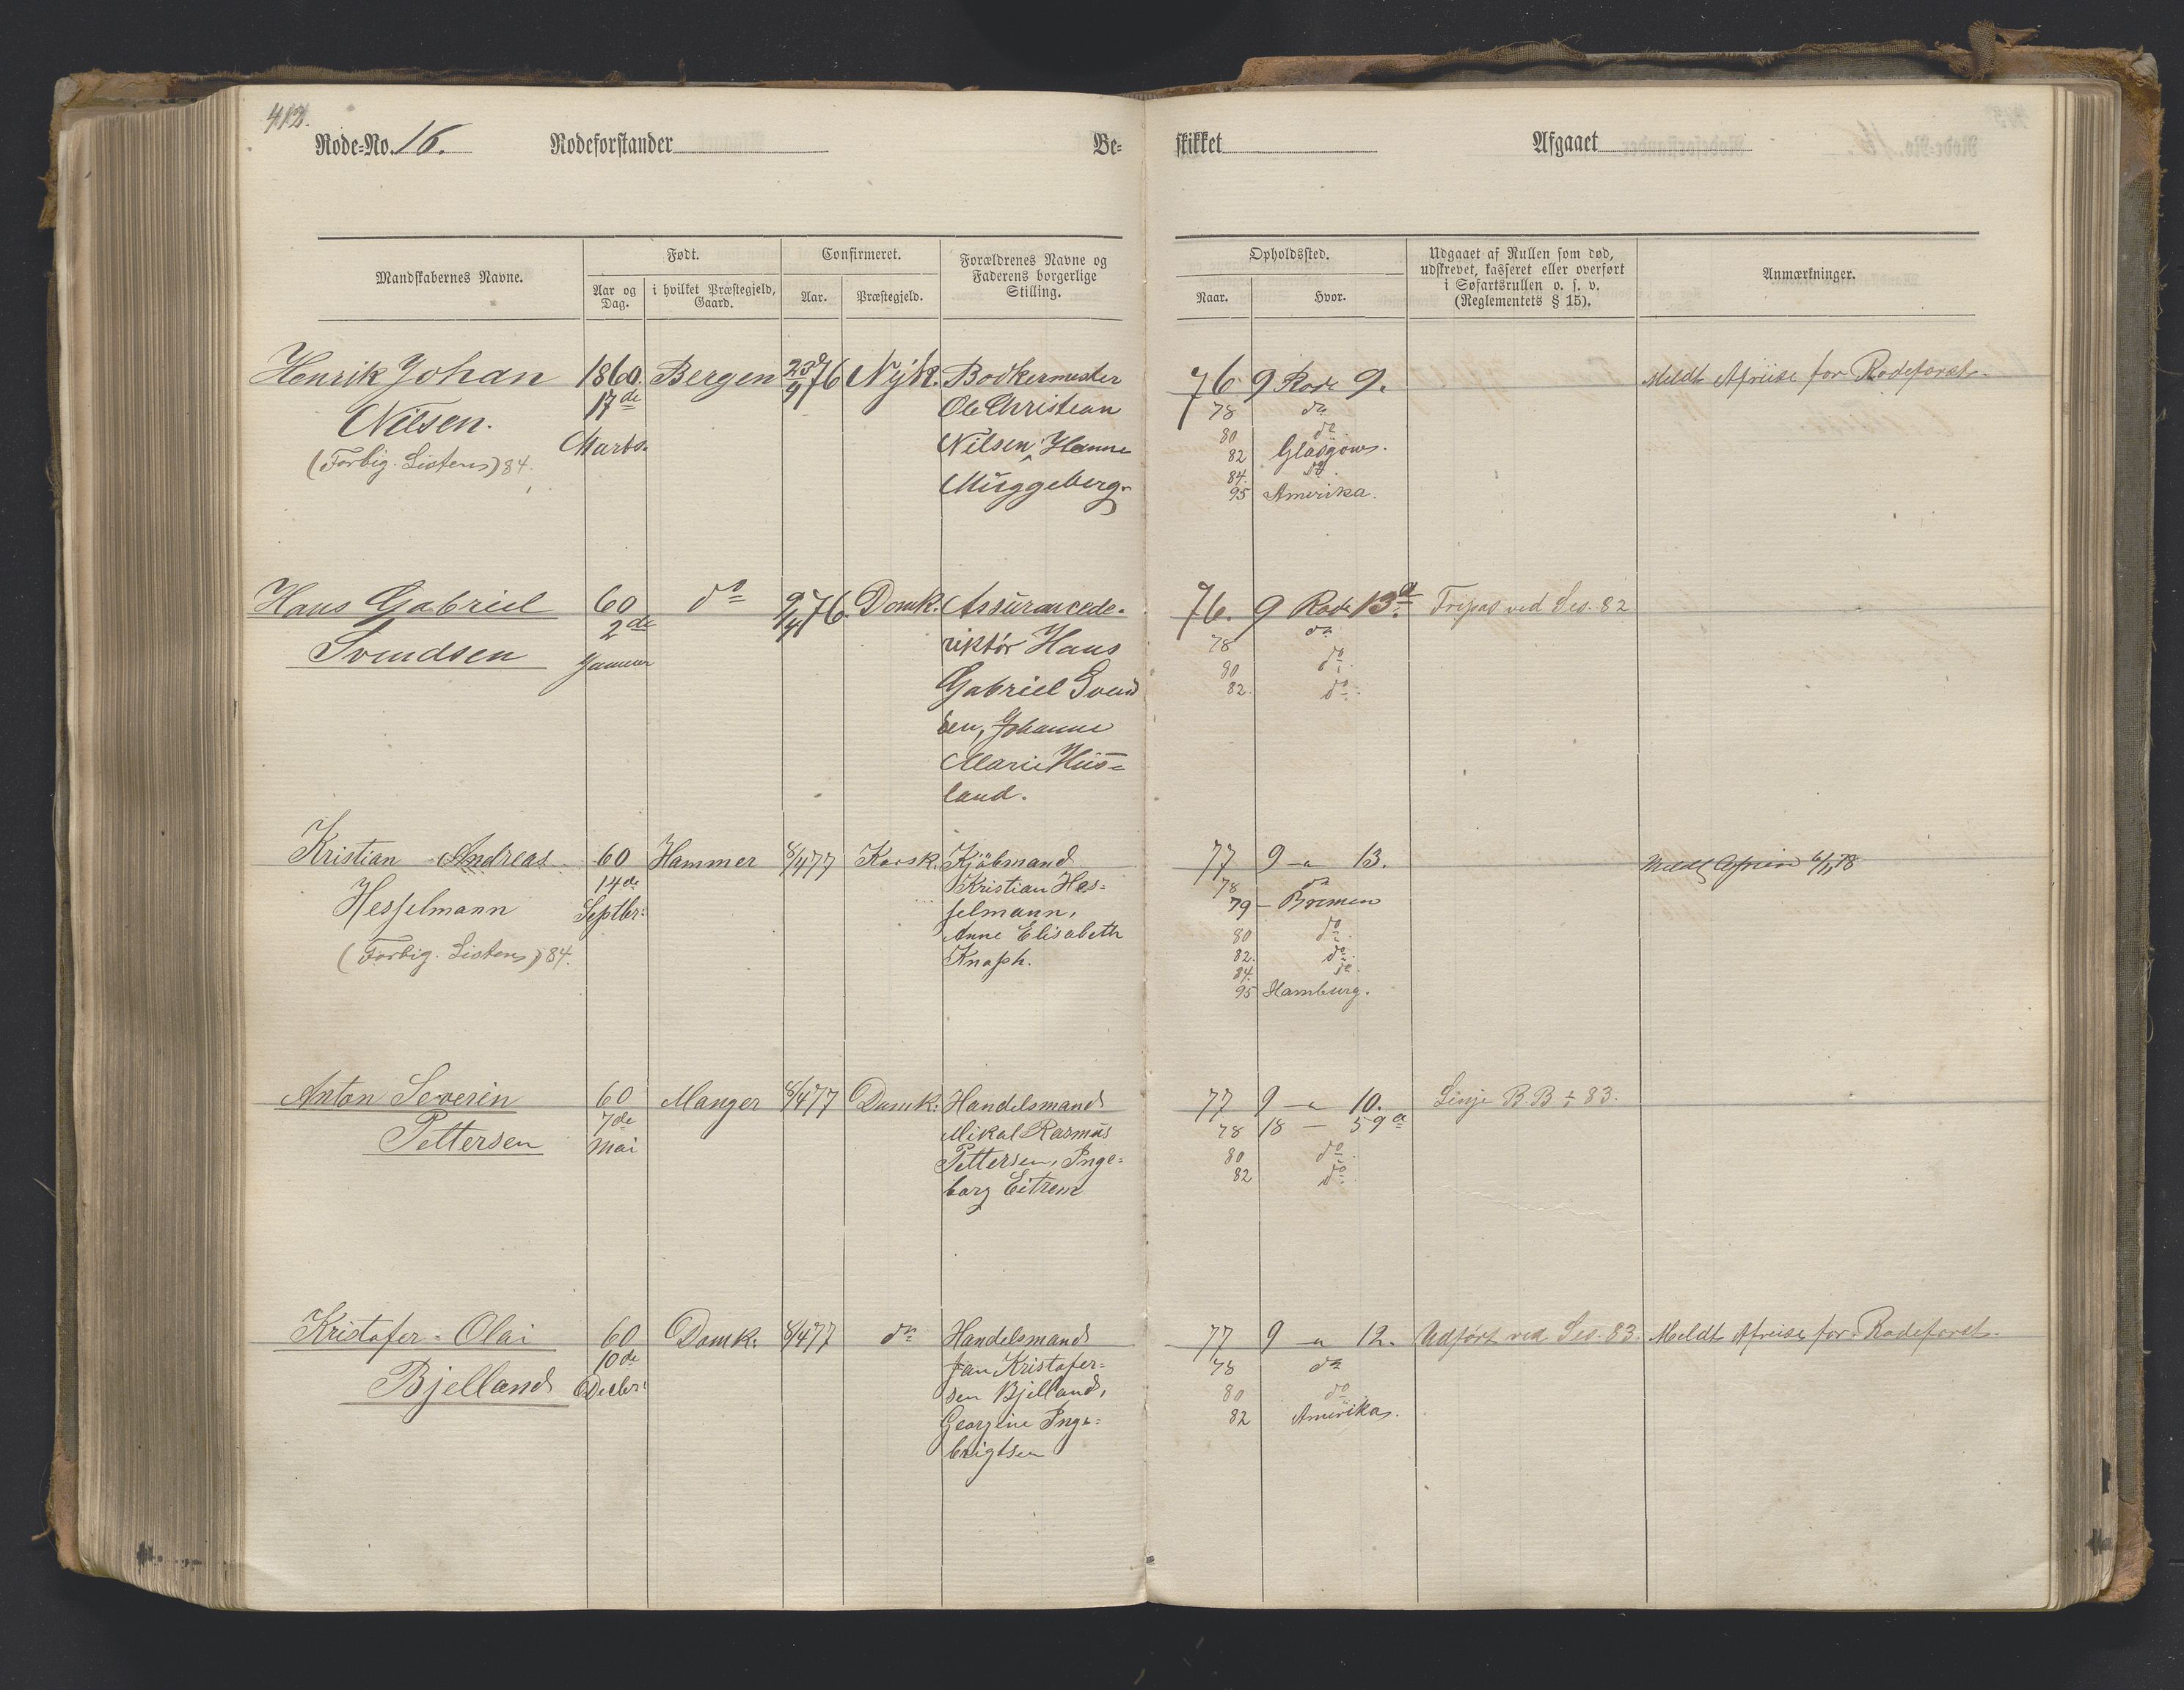 412.
Rode-No. 16. Rodeforstander Be- skikket Afgaaet
Mandskabernes Navne.
Født.
Aar og Dag.
i hvilket Præstegjeld, Gaard.
Confirmeret.
Aar.
Præstegjeld.
Forældrenes Navne og
Faderens borgerlige
Stilling.
Opholdssted.
Naar.
Hvor.
Udgaaet af Rullen som død,
udskrevet, kasseret eller overført
i Søfartsrullen o. s. v.
(Reglementets § 15).
Anmærkninger.
Henrik Johan 1860. Bergen 23/9 76 Nyk. Bødkermester 76 9 Rode 9. Meldt Afreise for Rodeforst.
17de Ole Christian 78 do
Nilsen. Marts. Nilsen, Hanne 80 do
(Forbig. Listens) 84. Müggeberg. 82 Glasgow.
84. do
95 Amerika.
Hans Gabriel 60 do 9/4 76. Domk. Assurancede- 76. 9 Rode 13a Fripas ved Ses. 82
2de rektör Hans 78 do
Svendsen Januar Gabriel Svend 80 do
sen, Johanne 82. do
Marie Hus-
land.
Kristian Andreas 60 Hammer 8/4 77 Korsk. Kjöbmand 77 9 - " 13. Meldt Afreise 78
14de Kristian Hes- 78 do
Hesselmann Septbr: selmann, 79 - Bremen
Anne Elisabeth 80 do
(Forbig. Listens) 84. Knaph. 82. do
84. do
95 Hamburg.
Anton Severin 60 Manger 8/4 77 Domk: Handelsmand 77 9 - " 10. Linje B. B. 83.
7de Mikal Rasmus 78 18 - 59a
Pettersen Mai Pettersen, Inge- 80 do
borg Eitrem 82 do
Kristofer - Olai 60 Domk: 8/4 77 do Handelsmand 77 9 - " 12. Udført ved Ses. 83. Meldt Afreise for Rodeforst.
10de Jan Kristofer- 78 do
Bjelland Decbr: sen Bjelland, 80 do
Georgine Inge- 82 Amerika.
brigtsen